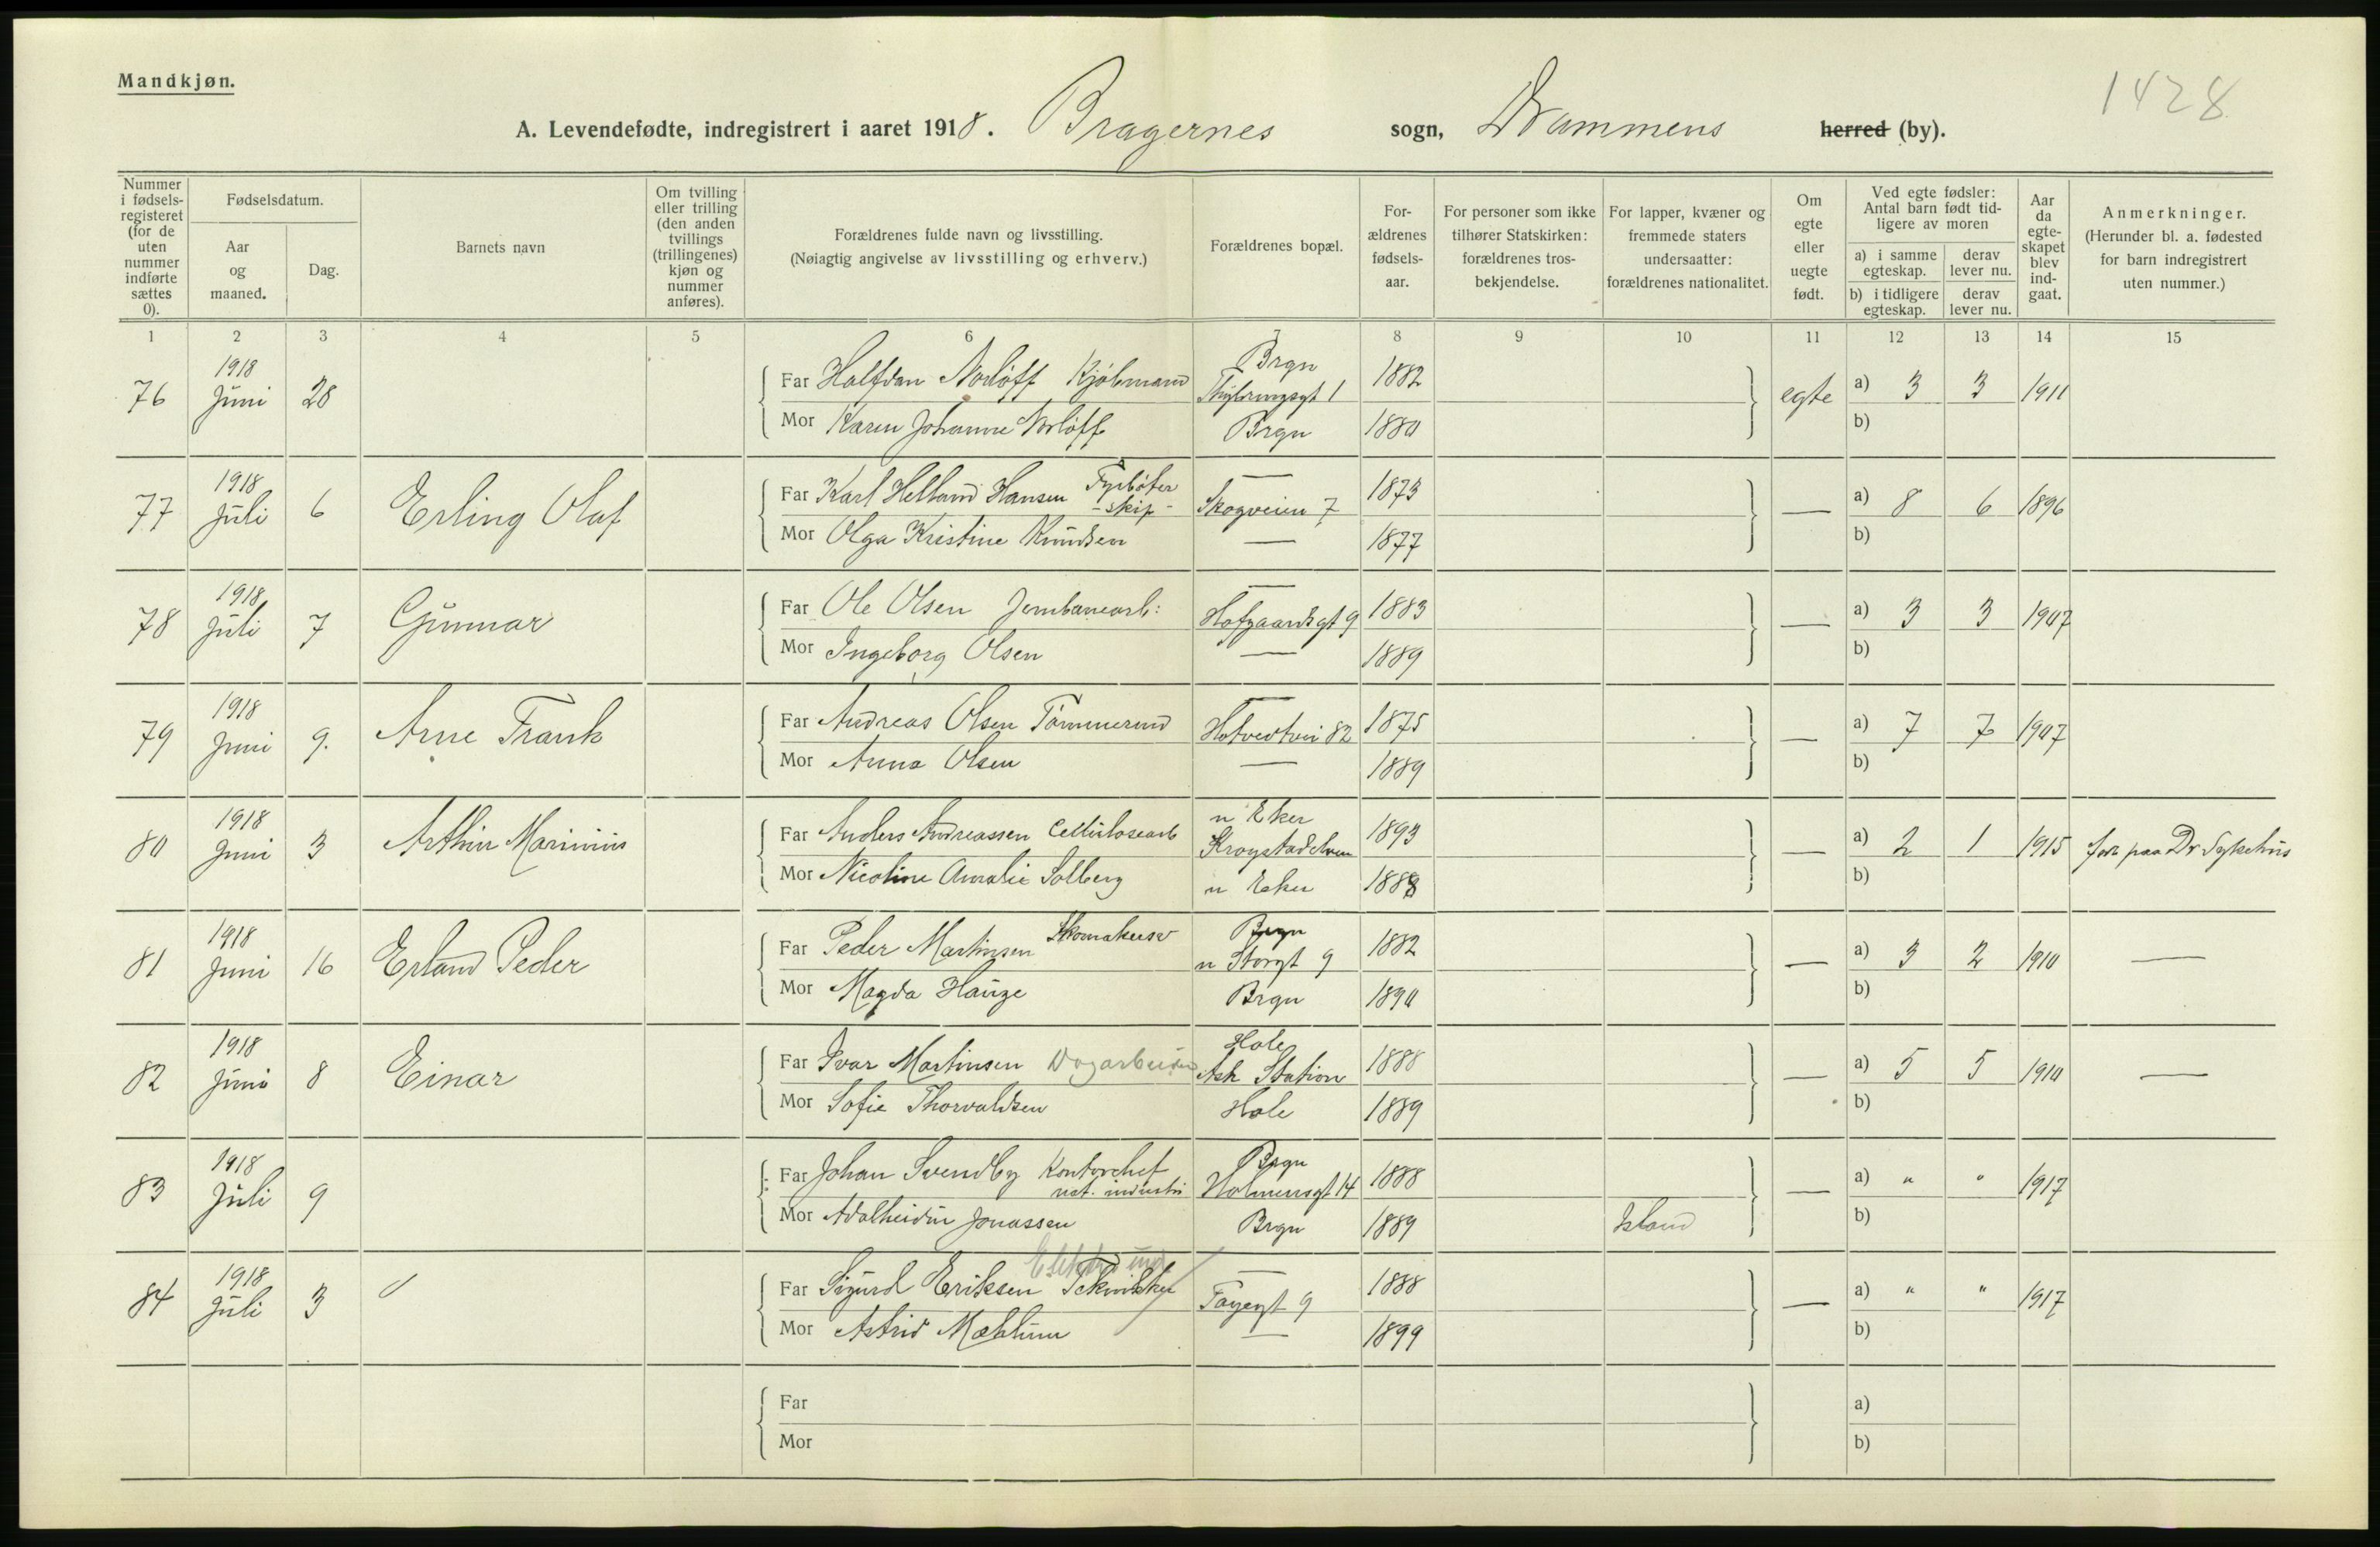 Mandkjøn.
1428
A. Levendefødte, indregistrert i aaret 1918. Bragernes sogn, Drammens herred (by).
Nummer i fødsels-registeret (for de uten nummer indførte sættes 0).
Fødselsdatum.
Aar og maaned.
Dag.
Barnets navn
Om tvilling eller trilling (den anden tvillings (trillingenes) kjøn og nummer anføres).
Forældrenes fulde navn og livsstilling.
(Nøiagtig angivelse av livsstilling og erhverv.)
Forældrenes bopæl.
For-ældrenes fødsels-aar.
For personer som ikke tilhører Statskirken: forældrenes tros-bekjendelse.
For lapper, kvæner og fremmede staters undersaatter: forældrenes nationalitet.
Om egte eller uegte født.
Ved egte fødsler: Antal barn født tid-ligere av moren
a) i samme egteskap.
derav lever nu.
b) i tidligere egteskap.
derav lever nu.
Aar da egte-skapet blev ind-gaat.
Anmerkninger.
(Herunder bl. a. fødested for barn indregistrert uten nummer.)
1 2 3 4 5 6 7 8 9 10 11 12 13 14 15
76 1918 Juni 28 Far Halfdan Norløff Kjøbmand Brgn 1882 egte a) 3 3 1911
Mor Karen Johanne Norløff Brgn 1880 b)
77 1918 Juli 6 Erling Olaf Far Karl Helland Hansen Fyrbøter - skip - — Skogveien 7 1873 — a) 8 6 1896
Mor Olga Kristine Knudsen — 1877 b)
78 1918 Juli 7 Gunnar Far Ole Olsen Jernbanearb: — Hofgaardsgt 9 1883 — a) 3 3 1907
Mor Ingeborg Olsen — 1889 b)
79 1918 Juni 9. Arne Frank Far Andreas Olsen Tømmerund — Hotvedtvei 82 1875 — a) 7 7 1907
Mor Anna Olsen — 1889 b)
80 1918 Juni 3 Arthur Marinius Far Anders Andreassen Cellulosearb n Eker Krogstadelven 1893 — a) 2 1 1915 født paa Dr Sykehus
Mor Nicoline Amalie Solberg n Eker 1888 b)
81 1918 Juni 16 Erland Peder Far Peder Martinsen Skomakersv Brgn n Storgt 9 1882 — a) 3 2 1910 —
Mor Magda Hauge Brgn 1890 b)
82 1918 Juni 8 Einar Far Ivar Martinsen Dagarbeider Hole Ask Station 1888 — a) 5 5 1910 —
Mor Sofie Thorvaldsen Hole 1889 b)
83 1918 Juli 9 Far Johan Svendby Kontorchef nat. industri Brgn Holmensgt 14 1888 — a) " " 1917
Mor Adalheidur Jonassen Brgn 1889 Island b)
84 1918 Juli 3 Far Sigurd Eriksen Tekniker — 1888 — a) " " 1917
Mor Astrid Mæhlum — 1899 b)
Far a)
Mor b)